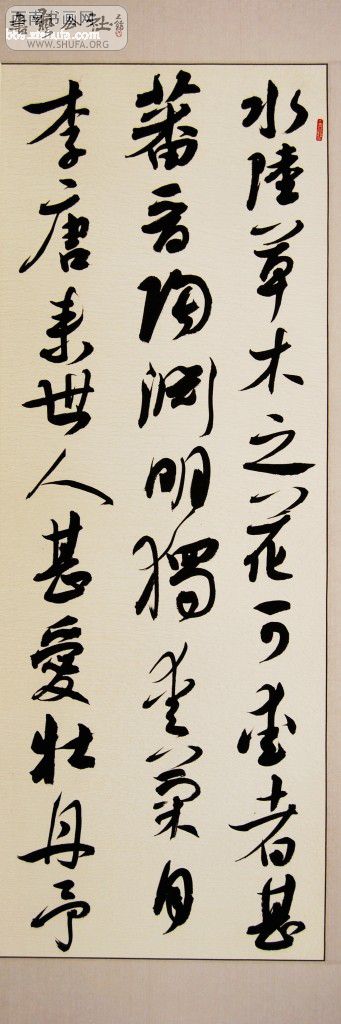 西南书画网
WWW.SHUFA.ORG
bbs.shufa.com
水陸草木之花可愛者甚
蕃晋陶渊明獨愛菊自
李唐来世人甚愛牡丹予